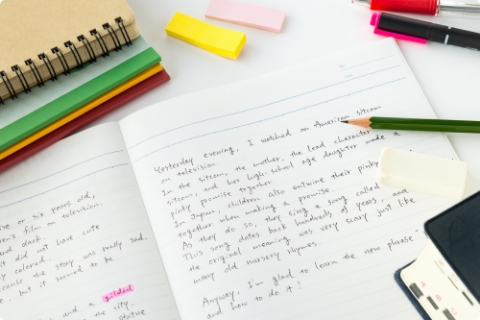 ve or six years old,
ren's film on television.
and dark.
it did not have cute
ly colored.
ecause the story was really sad.
e, but it seemed to be
and a gilded
the city.
statue
Yesterday evening, I watched an American sitcom
on television.
In the sitcom, the mother, the lead character
sitcom, and her high-school age daughter made a
pinky promise together.
In Japan, children also entwine their pinky
together when making a promise.
As they do so, they sing a song called
This song dates back hundreds of years, and
the original meaning was very scary just like
many old nursery rhymes.
Anyway, I'm glad to learn the new phrase
and how to do it!